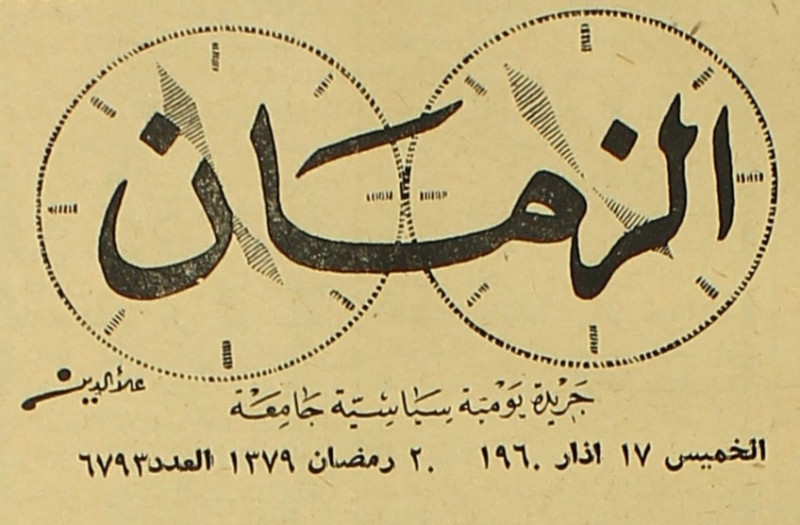 الزمان
علاء الدين
جريدة يومية سياسية جامعة
الخميس ١٧ اذار ١٩٦٠ ٢٠ رمضان ١٣٧٩ العدد ٦٧٩٣